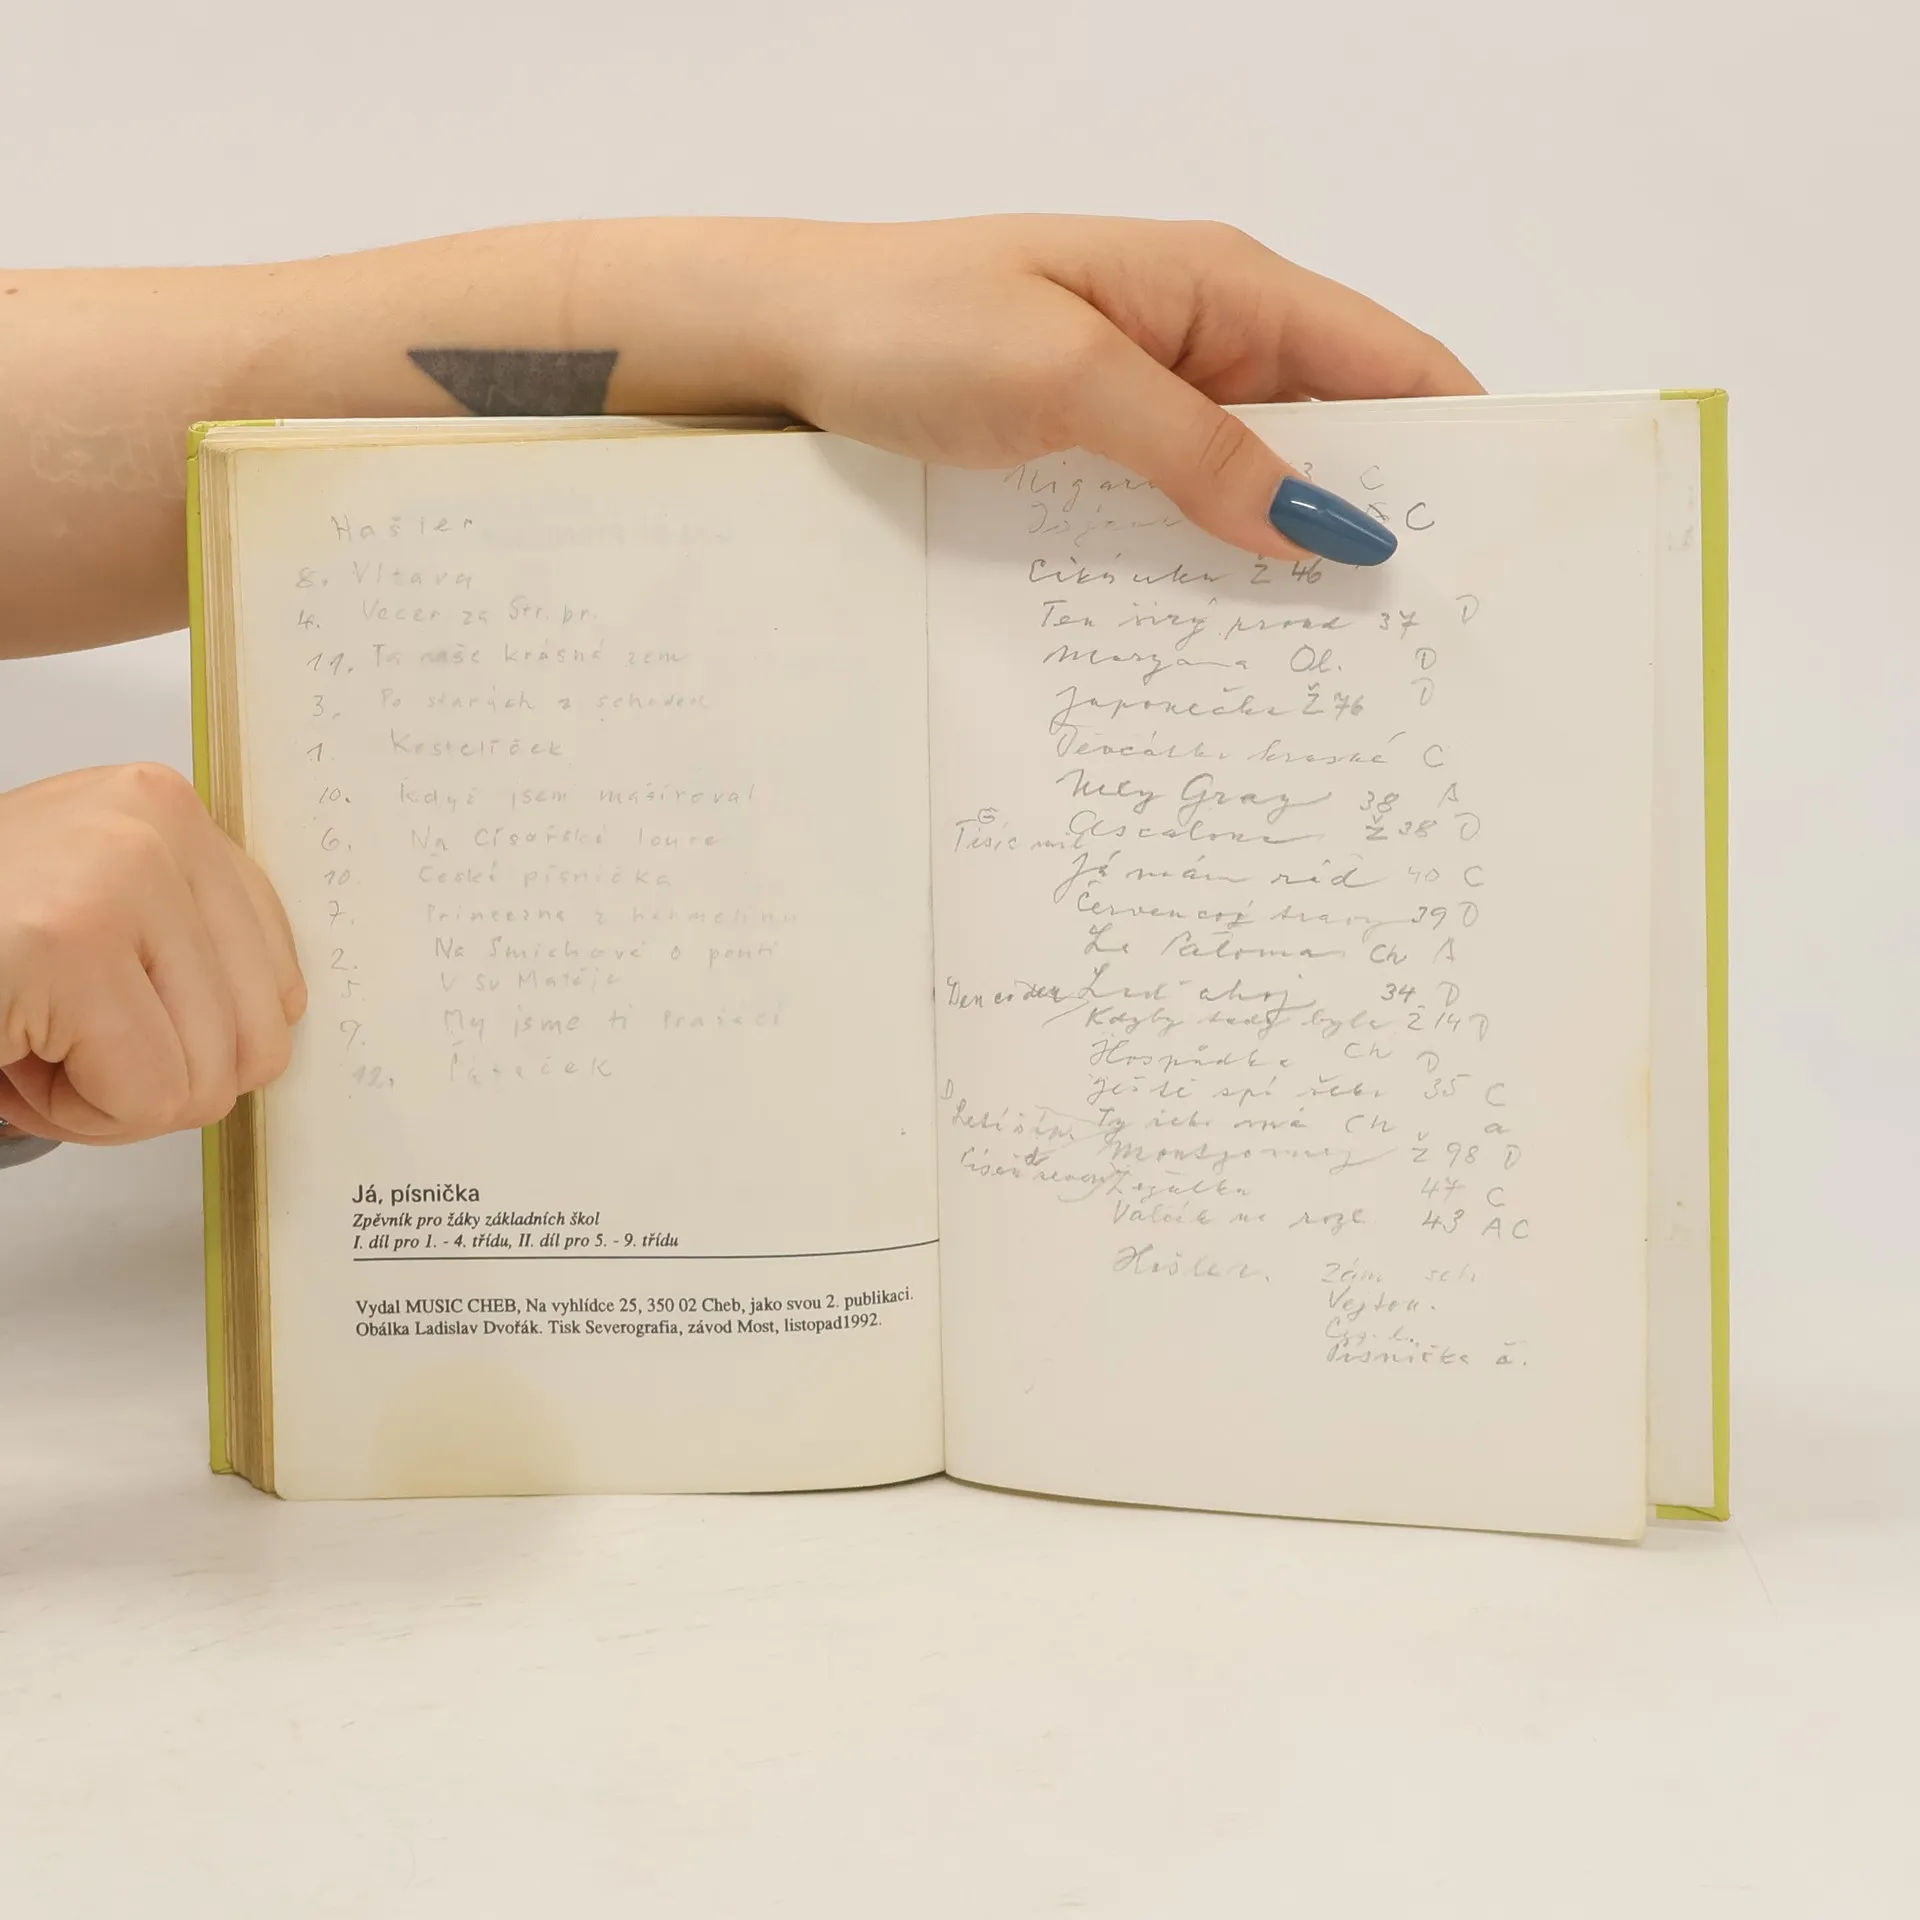 Hašler
8. Vltava
4. Večer za Str. br.
11. Ta naše krásná zem
3. Po starých z schodech
1. Kostelíček
10. Když jsem mašíroval
6. Na Císařské louce
10. Česká písnička
7. Princezna z hermelínu
2. Na Smíchově o pouti
5. U sv Matěje
9. My jsme ti Pražáci
12. Páteček
Já, písnička
Zpěvník pro žáky základních škol
I. díl pro 1. - 4. třídu, II. díl pro 5. - 9. třídu
Vydal MUSIC CHEB, Na vyhlídce 25, 350 02 Cheb, jako svou 2. publikaci.
Obálka Ladislav Dvořák. Tisk Severografia, závod Most, listopad1992.
3 C
C
Cikánka Ž 46
Ten širý proud 37 D
Maryana Ol. D
Japonečka Ž 76 D
Děvčátko hraské C
Nely Gray 38 A
G
Tisíc mil
Ascalona Ž 38 D
Já mám rád 40 C
Červencový travy 39 D
La Paloma Ch A
Den co den Loď ahoj 34 D
Kdyby tady byla Ž 14 D
Hospůdka Ch D
Ještě spí 35 C
D
Letí šíp. Ty Ch a
Montgomery Ž 98 D
Píseň
Žízalka 47 C
Valčík na rozl. 43 A C
Hašler. Zám sch
Vejton.
Písnička č.